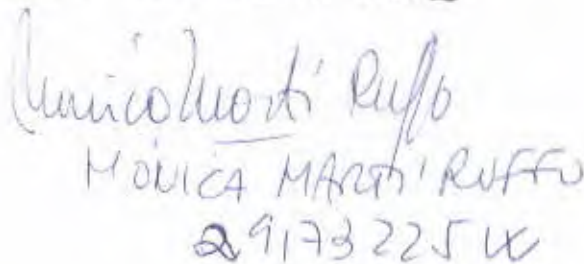 Monica Marti Ruffo
MÓNICA MARTI RUFFO
29173225W